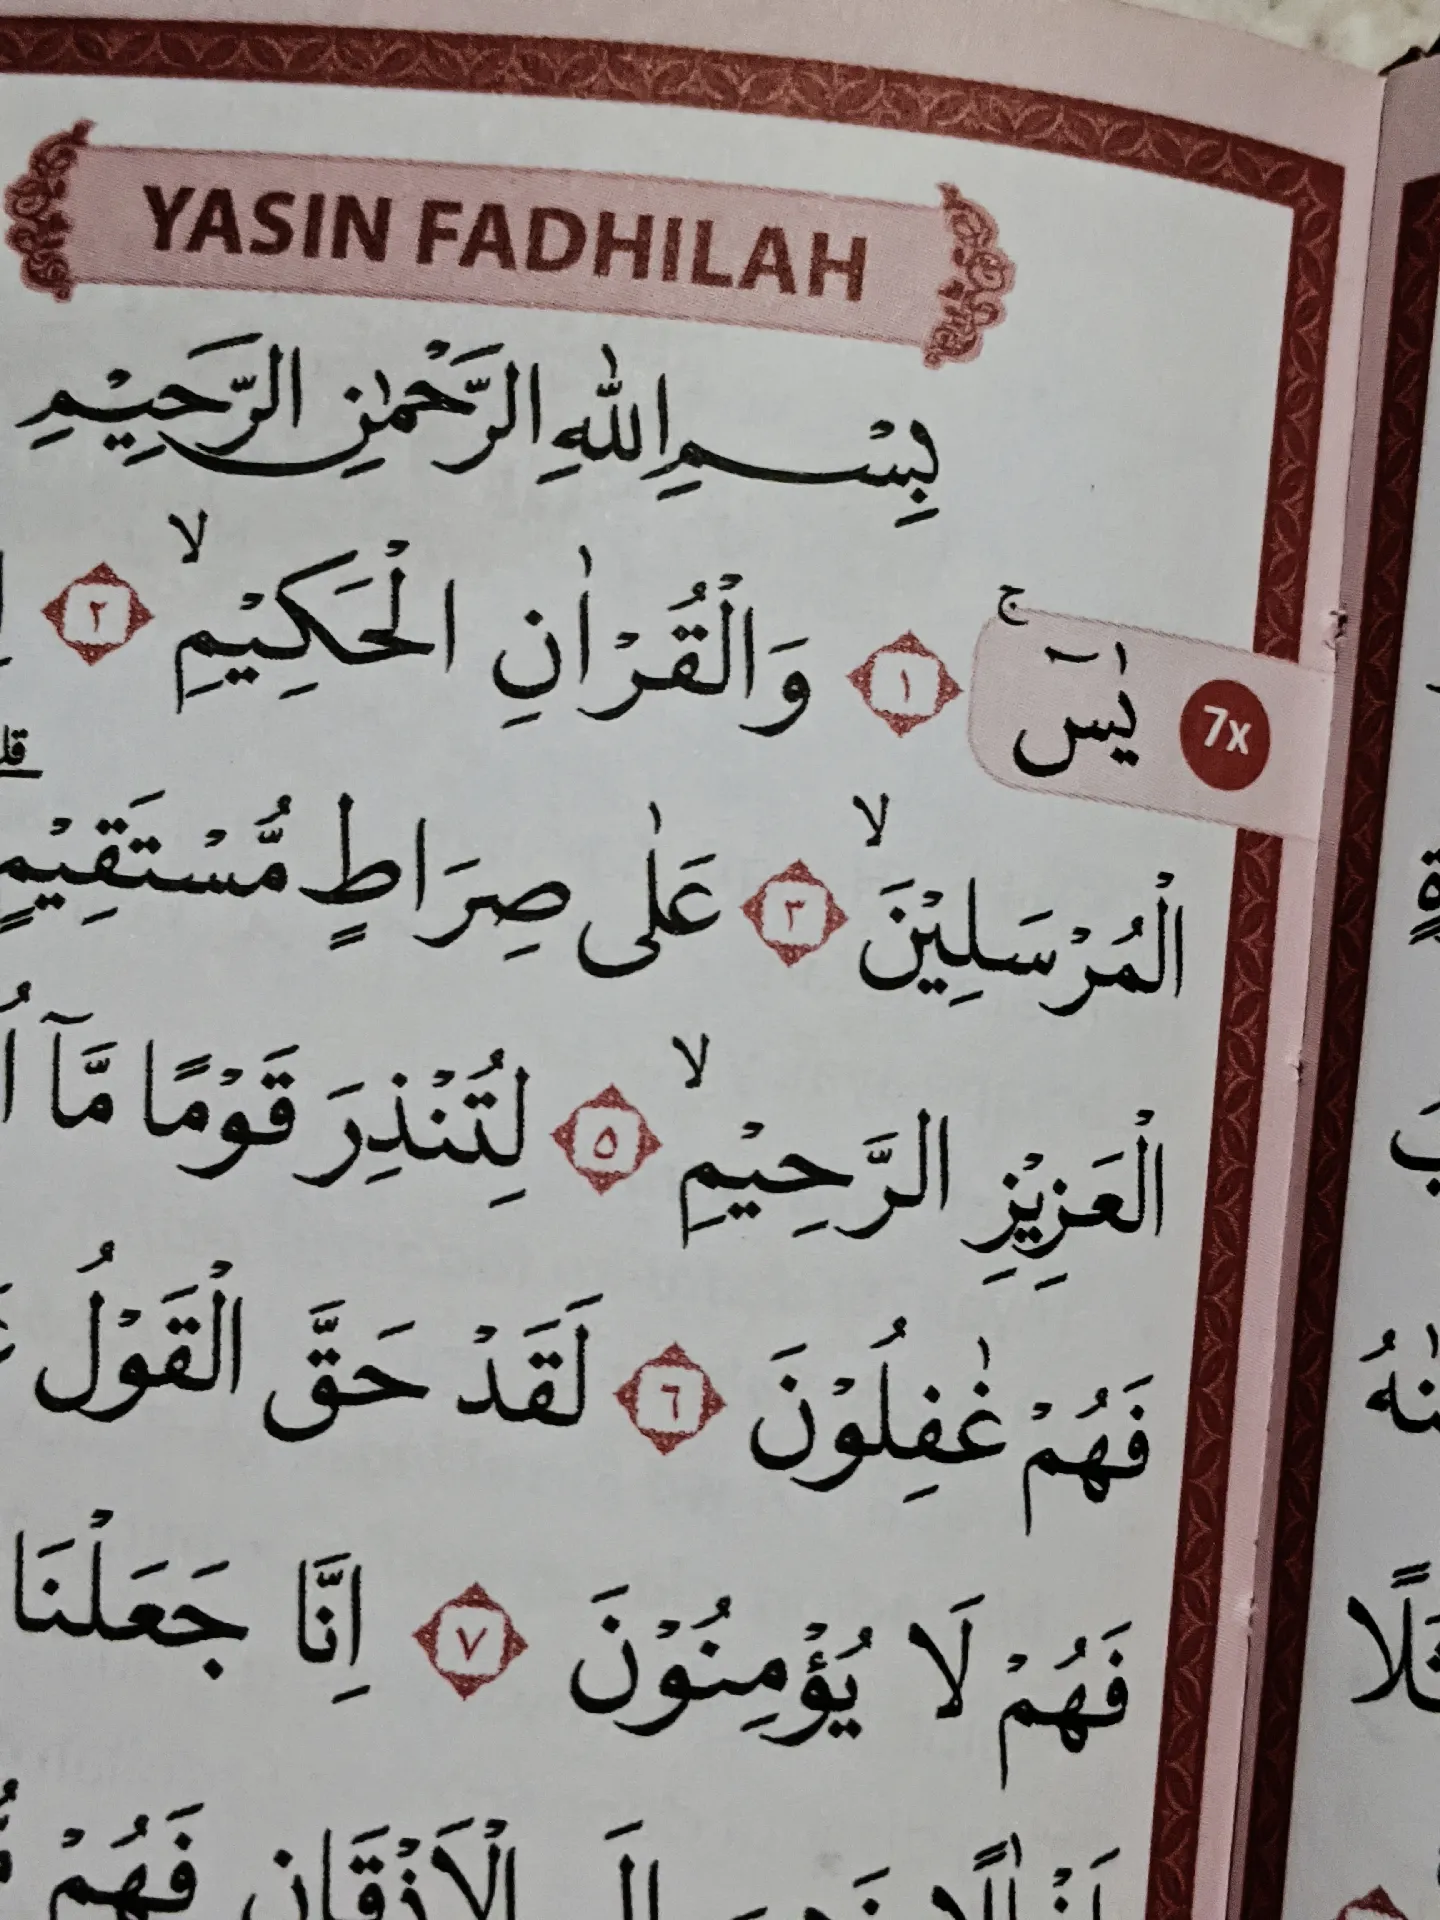 YASIN FADHILAH
بِسْمِ اللّٰهِ الرَّحْمٰنِ الرَّحِيْمِ
7x يٰسۤ ۚ ١ وَالْقُرْاٰنِ الْحَكِيْمِۙ ٢
الْمُرْسَلِيْنَۙ ٣ عَلٰى صِرَاطٍ مُّسْتَقِيْمٍ
الْعَزِيْزِ الرَّحِيْمِۙ ٥ لِتُنْذِرَ قَوْمًا مَّآ
فَهُمْ غٰفِلُوْنَ ٦ لَقَدْ حَقَّ الْقَوْلُ
فَهُمْ لَا يُؤْمِنُوْنَ ٧ اِنَّا جَعَلْنَا
الْاَذْقَانِ فَهُمْ